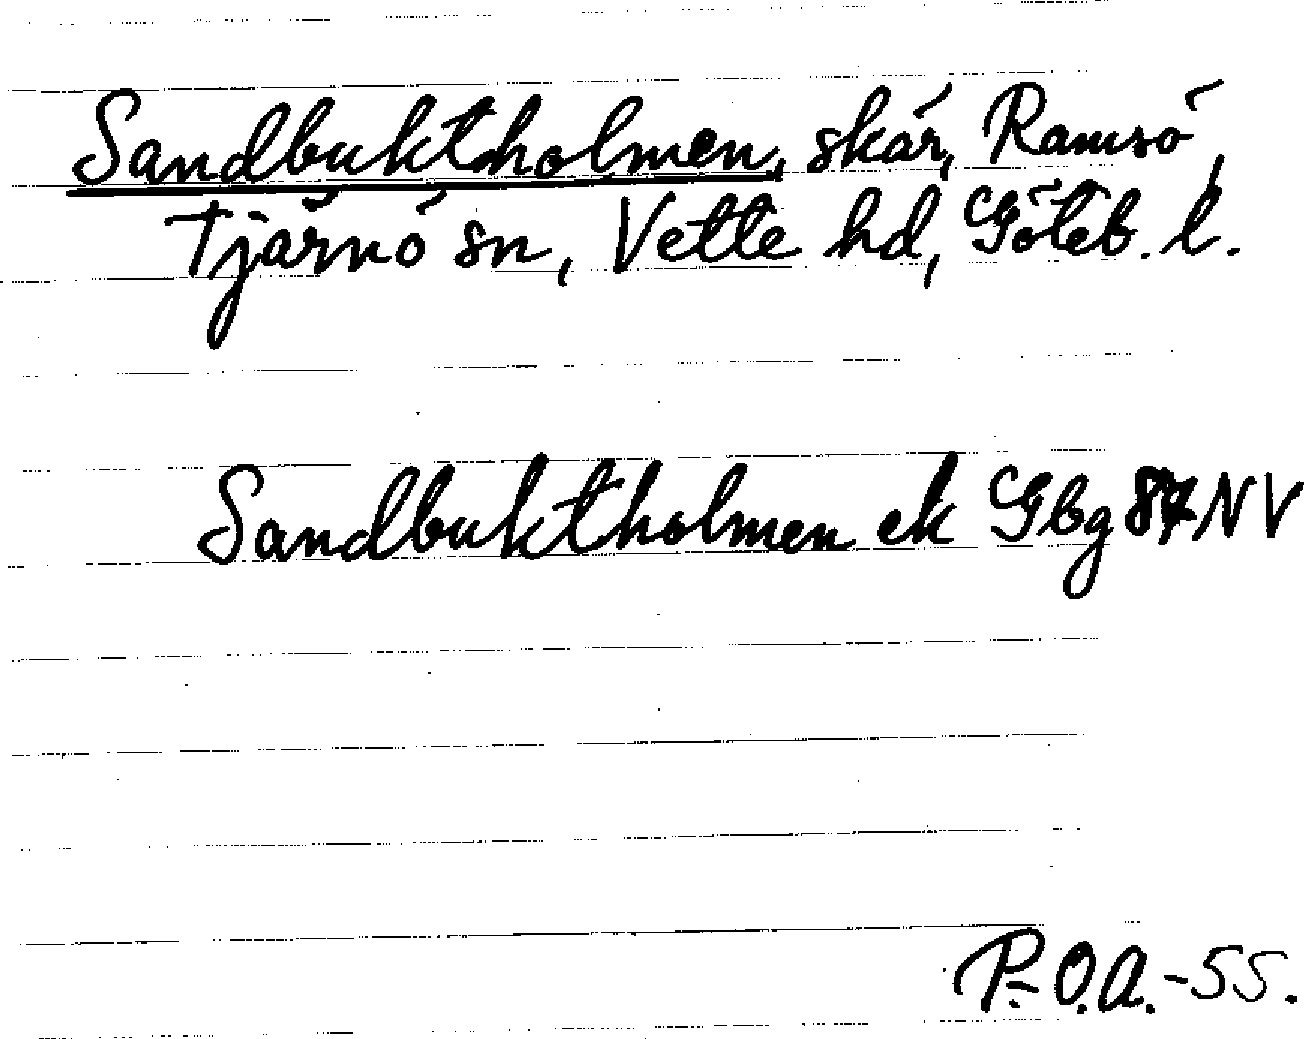 Sandbuktholmen, skär, Ramsö,
Tjärnö sn, Vette hd, Göteb. l.
Sandbuktholmen ek Gbg 87 NV
P.O.A.-55.